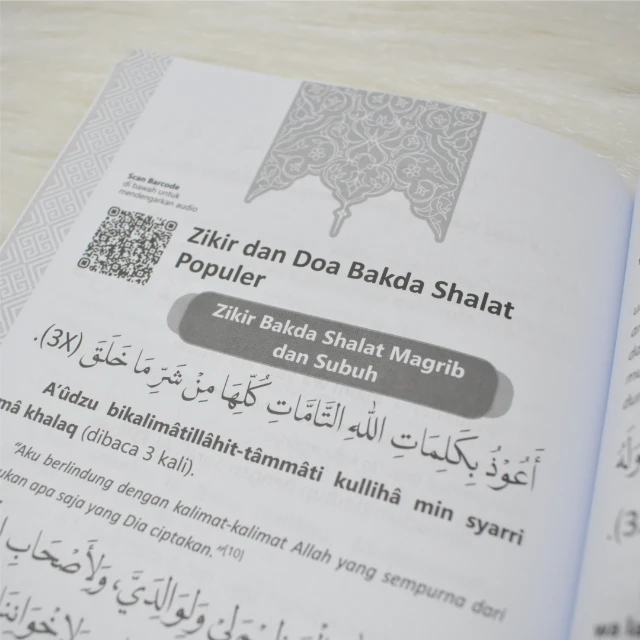 Scan Barcode
di bawah untuk
mendengarkan audio
Zikir dan Doa Bakda Shalat
Populer
Zikir Bakda Shalat Magrib
dan Subuh
أَعُوْذُ بِكَلِمَاتِ اللّٰهِ التَّامَّاتِ كُلِّهَا مِنْ شَرِّ مَا خَلَقَ (3X).
A'ûdzu bikalimâtillâhit-tâmmâti kullihâ min syarri
mâ khalaq (dibaca 3 kali).
"Aku berlindung dengan kalimat-kalimat Allah yang sempurna dari
apa saja yang Dia ciptakan."[10]
وَلِوَالِدَيَّ، وَلِأَصْحَابِ